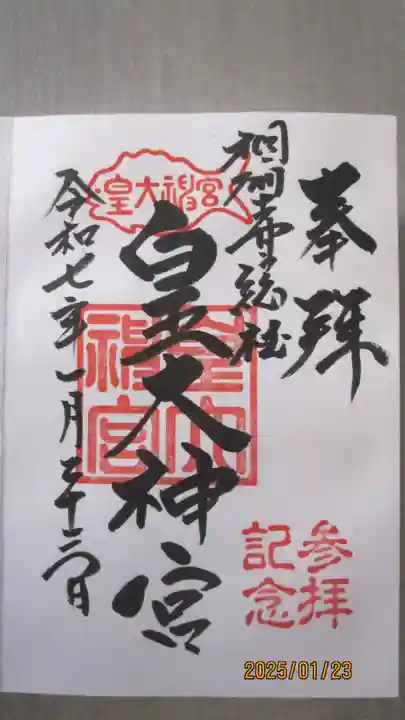 奉拝
相州帝総社
皇大神宮
皇大神宮
皇大神宮
令和七年一月二十三日
参拝
記念
2025/01/23